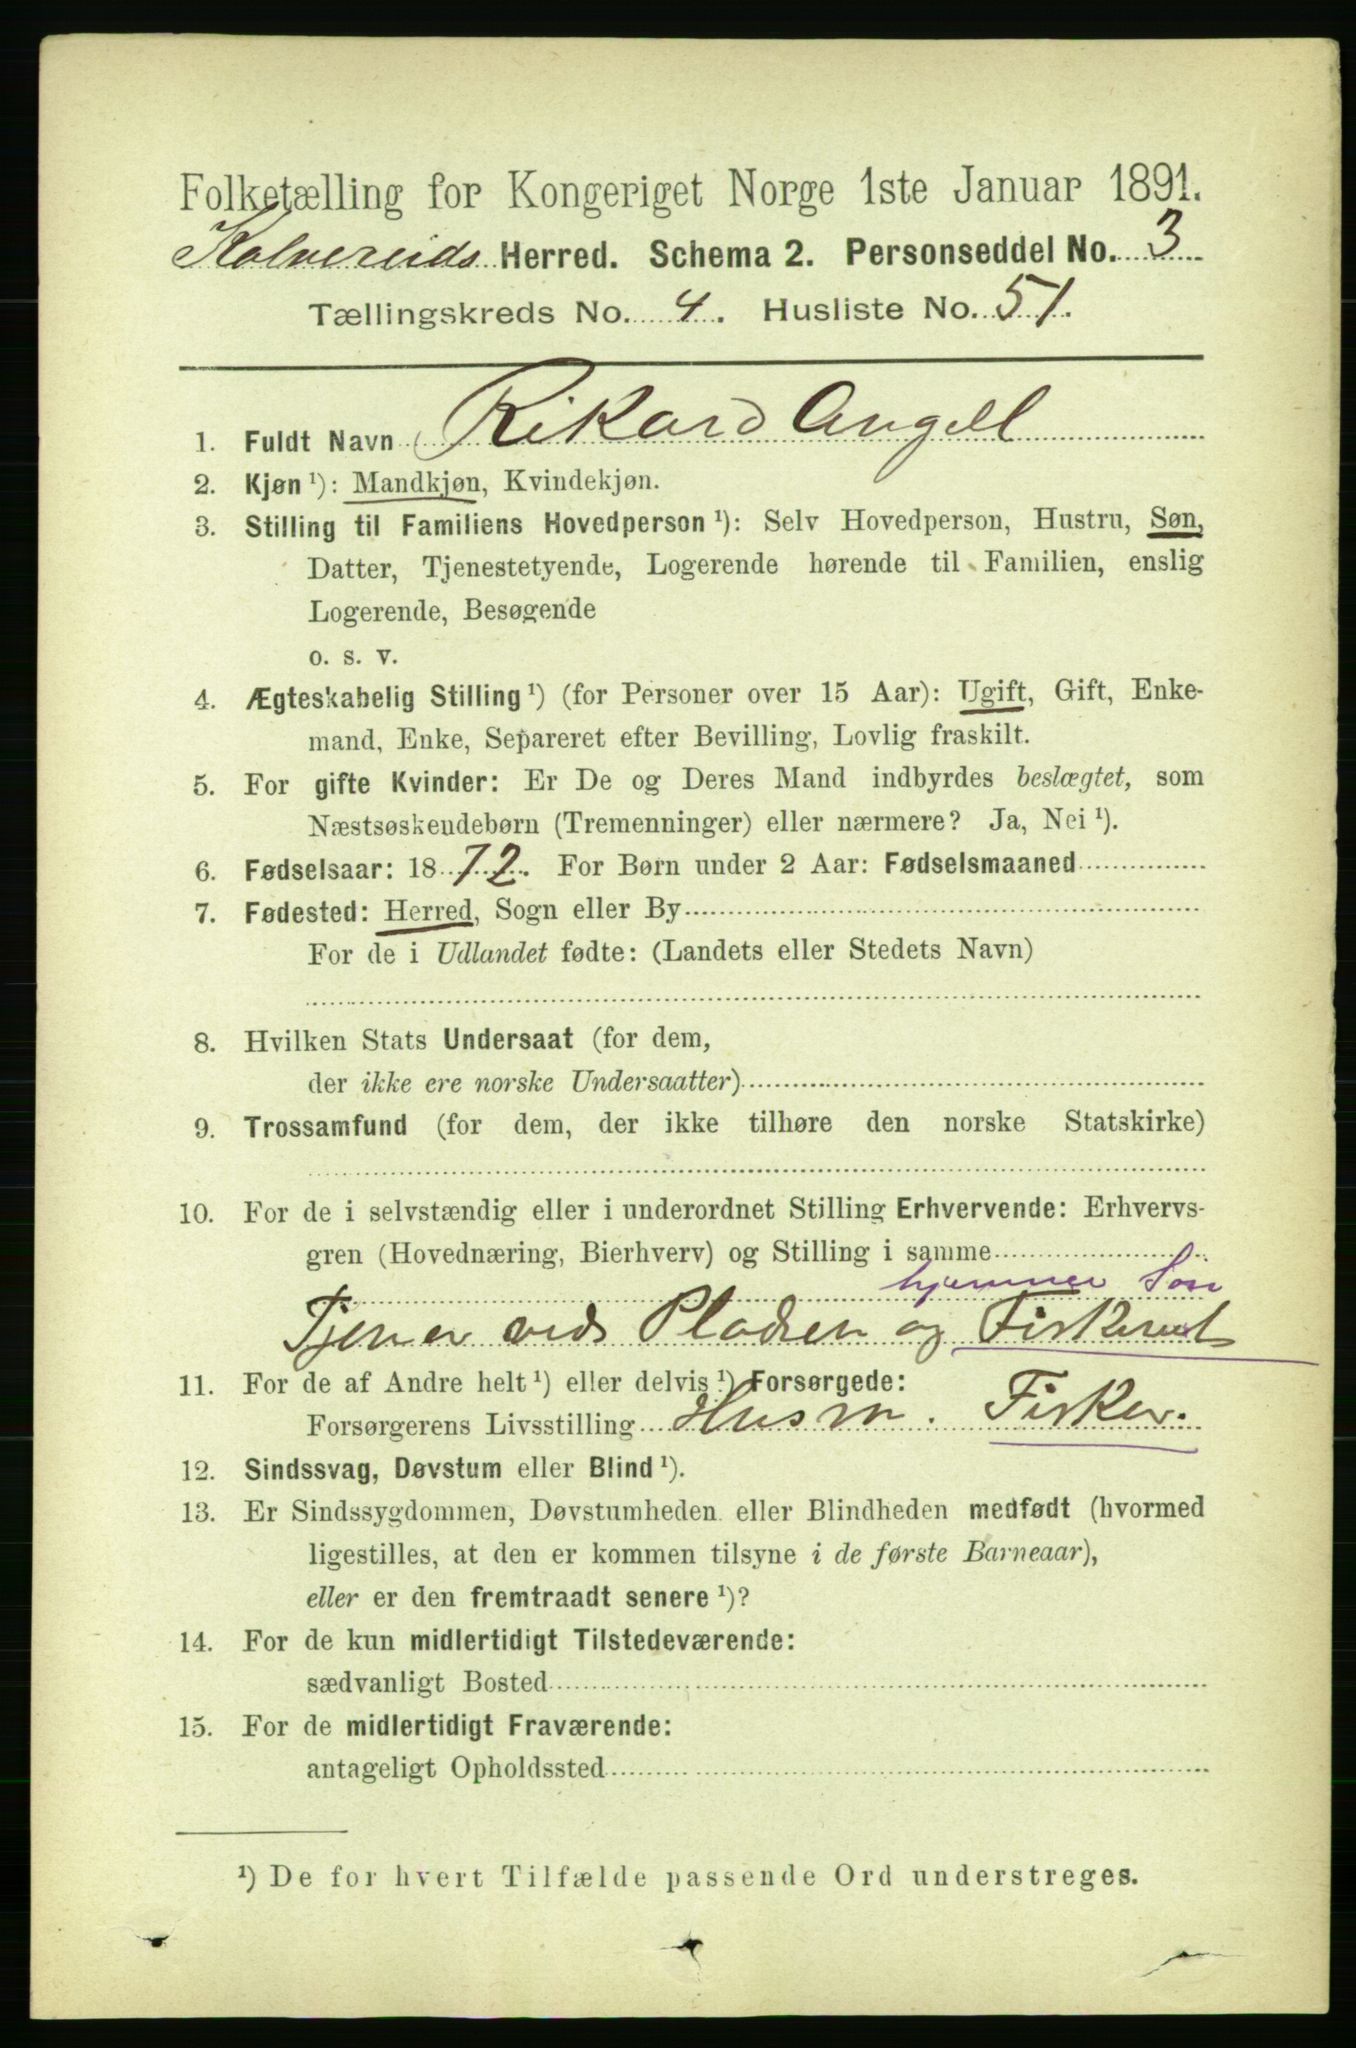 Folketælling for Kongeriget Norge 1ste Januar 1891.
Kolvereids Herred. Schema 2. Personseddel No. 3
Tællingskreds No. 4. Husliste No. 51.
1. Fuldt Navn Rikard Angell
2. Kjøn ¹): Mandkjøn, Kvindekjøn.
3. Stilling til Familiens Hovedperson ¹): Selv Hovedperson, Hustru, Søn,
Datter, Tjenestetyende, Logerende hørende til Familien, enslig
Logerende, Besøgende
o. s. v.
4. Ægteskabelig Stilling ¹) (for Personer over 15 Aar): Ugift, Gift, Enke-
mand, Enke, Separeret efter Bevilling, Lovlig fraskilt.
5. For gifte Kvinder: Er De og Deres Mand indbyrdes beslægtet, som
Næstsøskendebørn (Tremenninger) eller nærmere? Ja, Nei ¹).
6. Fødselsaar: 1872. For Børn under 2 Aar: Fødselsmaaned
7. Fødested: Herred, Sogn eller By
For de i Udlandet fødte: (Landets eller Stedets Navn)
8. Hvilken Stats Undersaat (for dem,
der ikke ere norske Undersaatter)
9. Trossamfund (for dem, der ikke tilhøre den norske Statskirke)
10. For de i selvstændig eller i underordnet Stilling Erhvervende: Erhvervs-
gren (Hovednæring, Bierhverv) og Stilling i samme
hjemmev Søn
Tjener veds Pladsen og Fiskeriet
11. For de af Andre helt ¹) eller delvis ¹) Forsørgede:
Forsørgerens Livsstilling Husm. Fisker.
12. Sindssvag, Døvstum eller Blind ¹).
13. Er Sindssygdommen, Døvstumheden eller Blindheden medfødt (hvormed
ligestilles, at den er kommen tilsyne i de første Barneaar),
eller er den fremtraadt senere ¹)?
14. For de kun midlertidigt Tilstedeværende:
sædvanligt Bosted
15. For de midlertidigt Fraværende:
antageligt Opholdssted
¹) De for hvert Tilfælde passende Ord understreges.